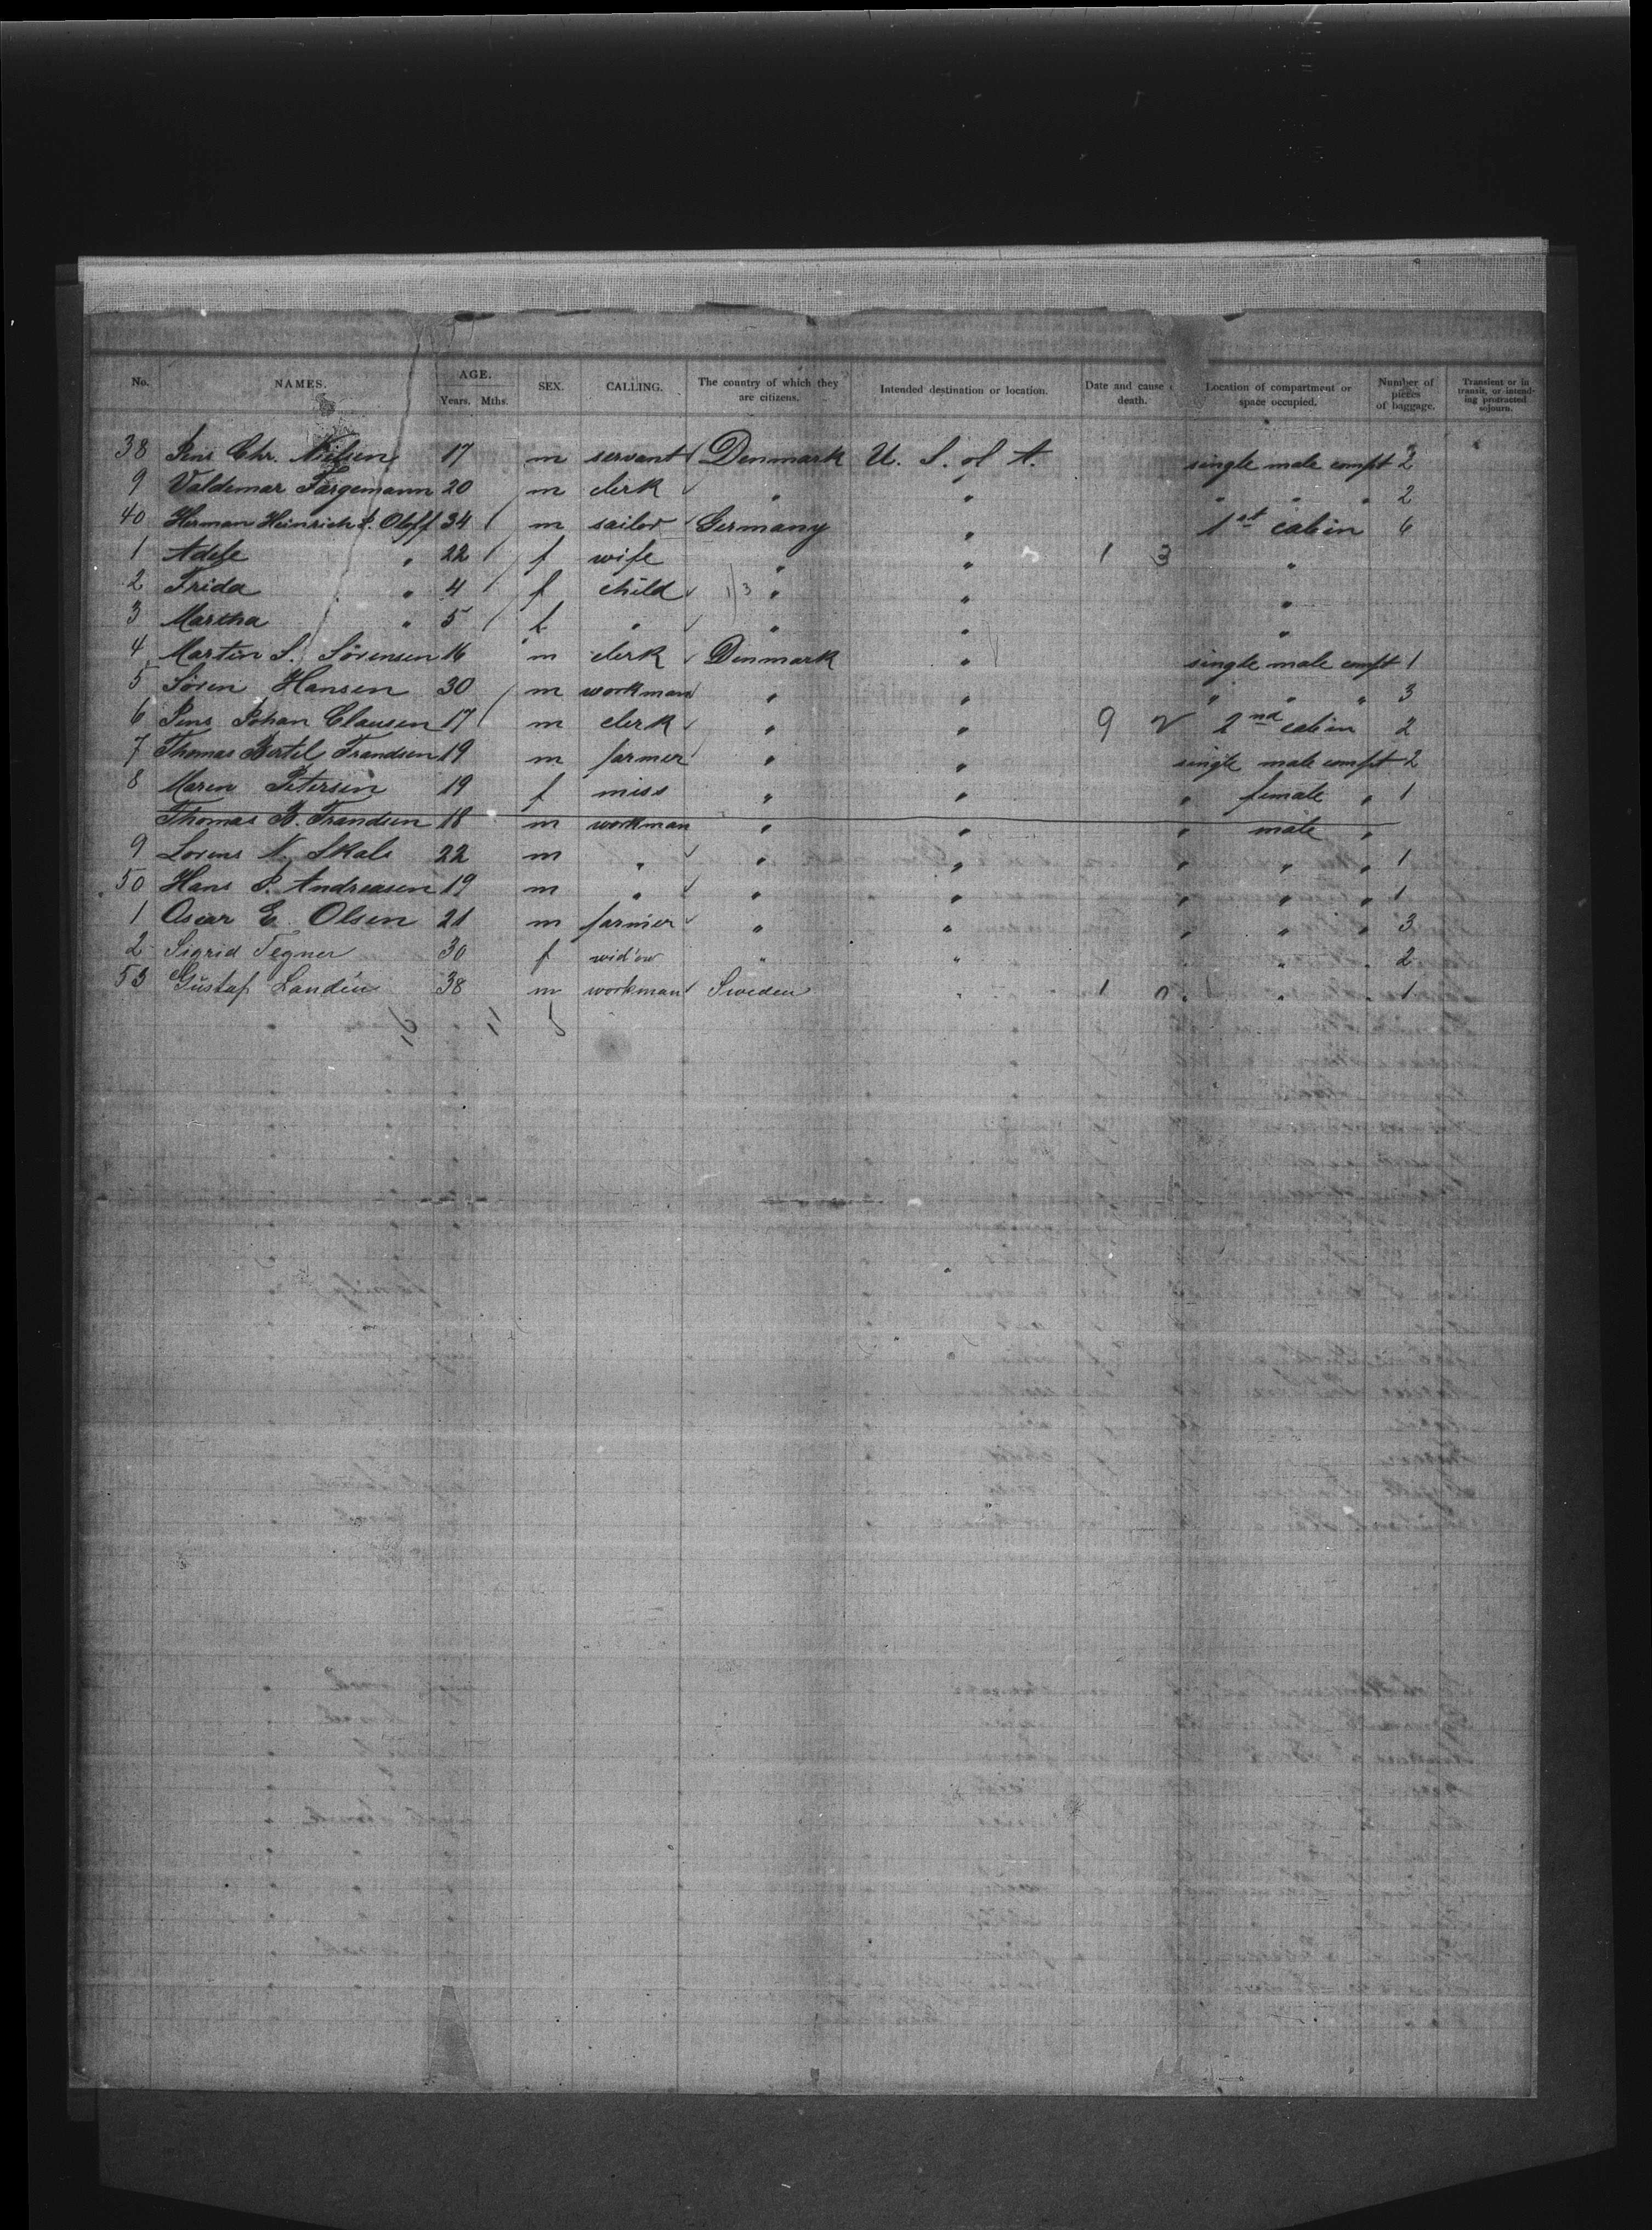 No. NAMES. AGE. Years. Mths. SEX. CALLING. The country of which they are citizens. Intended destination or location. Date and cause death. Location of compartment or space occupied. Number of pieces of baggage. Transient or in transit, or intending protracted sojourn.
38 Jens Chr. Nielsen 17 m servant Denmark U. S. of A. single male compt 2
9 Valdemar Fargemann 20 m clerk " " " " " 2
40 Herman Heinrich P. Oloff 34 m sailor Germany " 1st cabin 6
1 Adele " 22 f wife " " 1 3 "
2 Frida " 4 f child 1/3 " " "
3 Martha " 5 f " " " "
4 Martin S. Sörensen 16 m clerk Denmark " single male compt 1
5 Sören Hansen 30 m workman " " " " " 3
6 Jens Johan Clausen 17 m clerk " " 9 2nd cabin 2
7 Thomas Bertel Frandsen 19 m farmer " " single male compt 2
8 Maren Petersen 19 f miss " " " female " 1
Thomas B. Frandsen 18 m workman " " " male "
9 Lorens N. Skals 22 m " " " " " " 1
50 Hans P. Andreasen 19 m " " " " " " 1
1 Oscar E. Olsen 21 m farmer " " " " " 3
2 Sigrid Tegner 30 f widow " " " " " 2
53 Gustaf Landin 38 m workman Sweden " 1 " " " 1